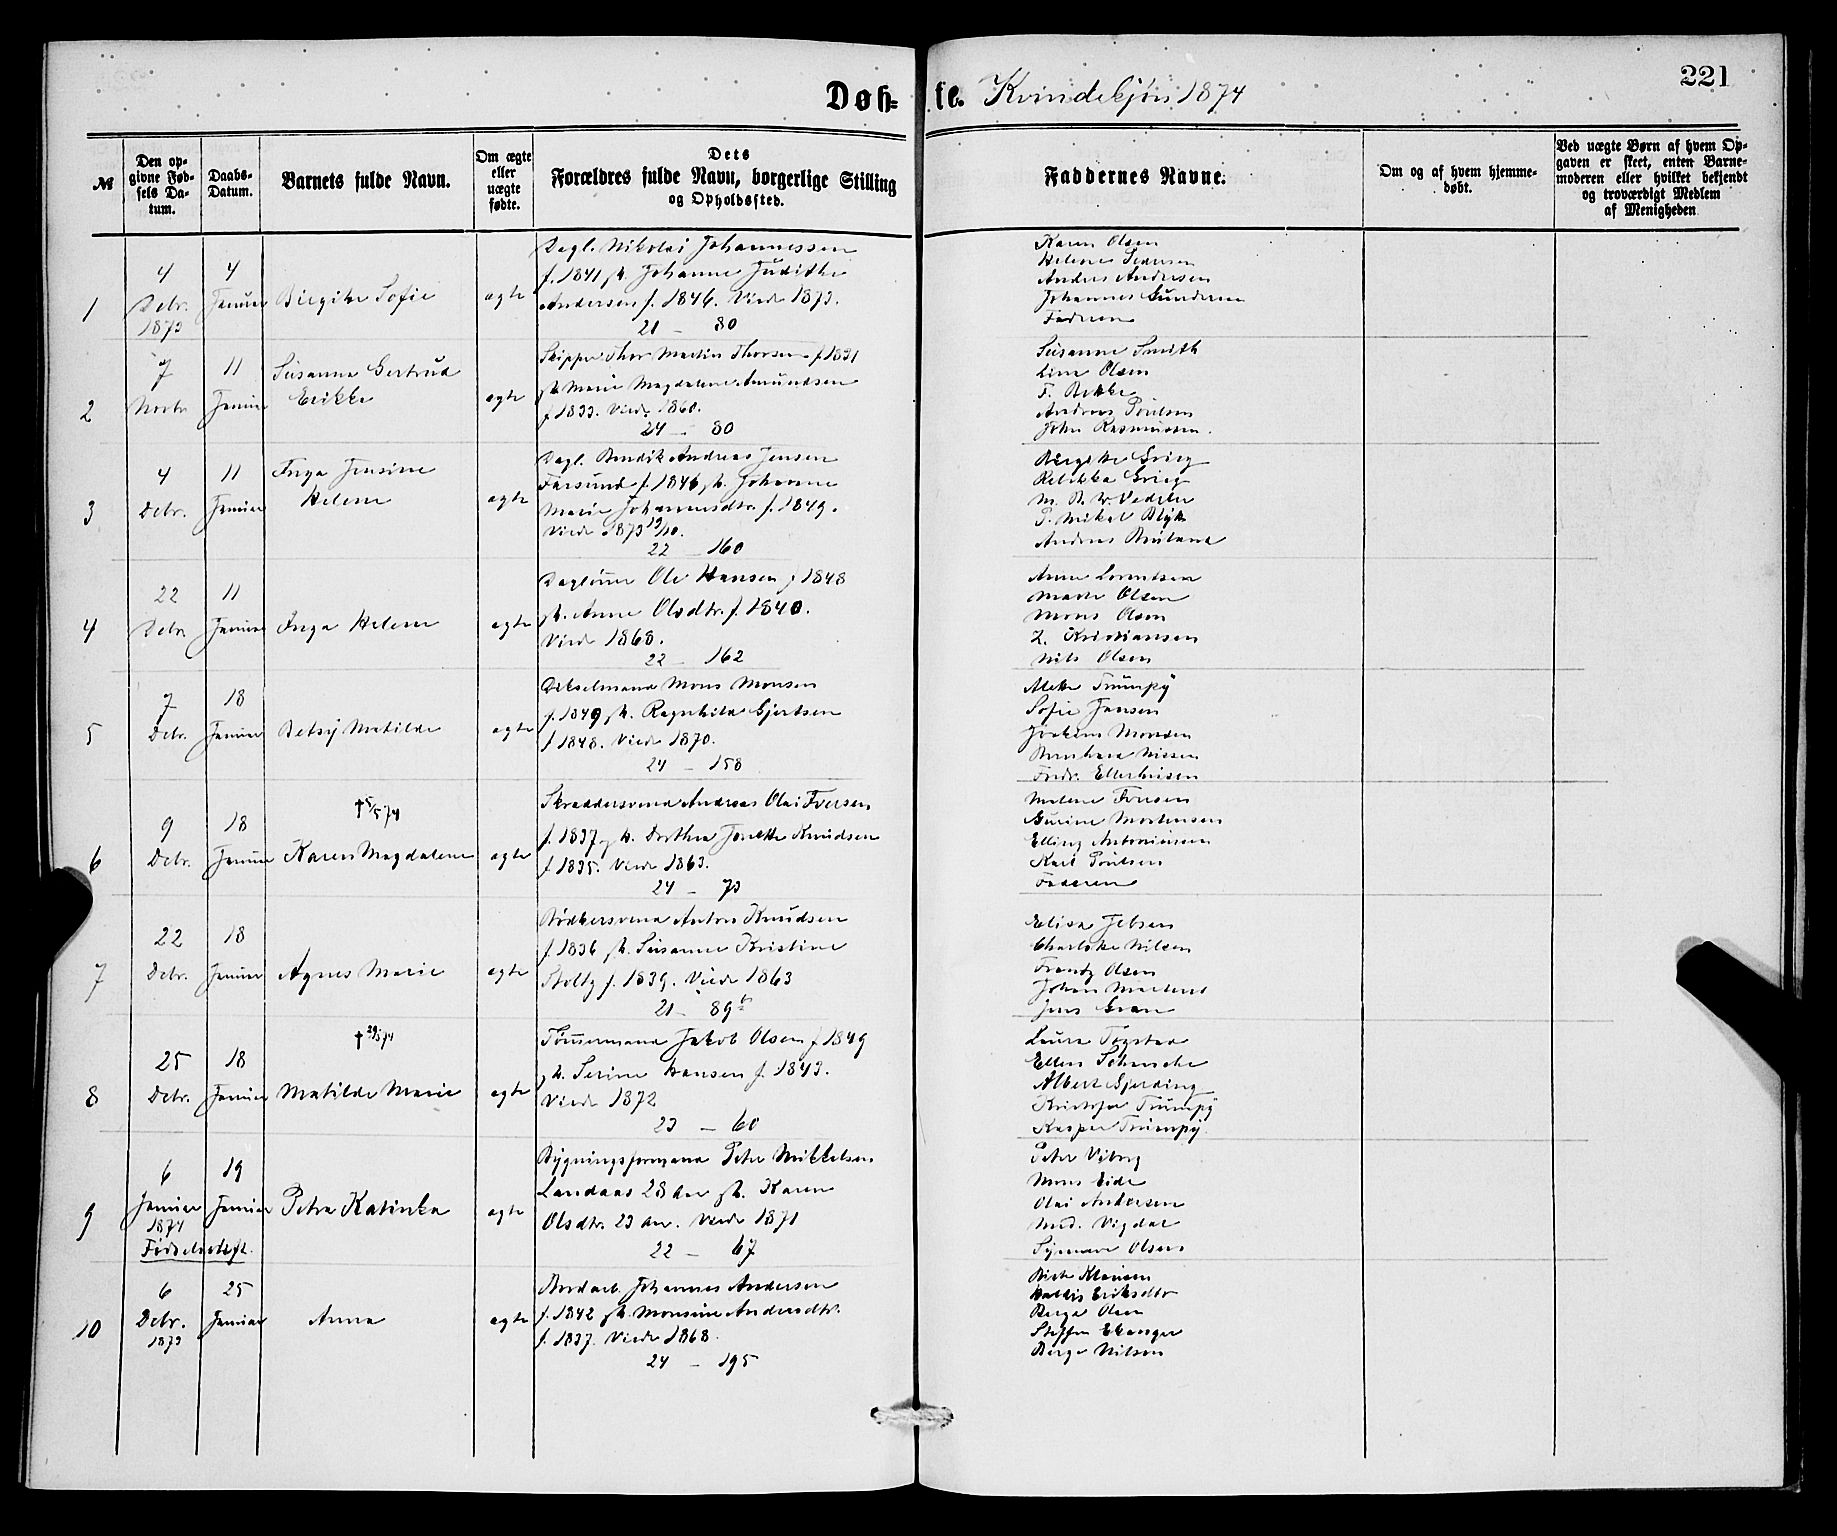 221
Døb- te. Kvindekjøn 1874
№
Den op-
givne Fød-
sels Da-
tum.
Daabs-
Datum.
Barnets fulde Navn.
Om ægte
eller
uægte
fødte.
Dets
Forældres fulde Navn, borgerlige Stilling
og Opholdssted.
Faddernes Navne.
Om og af hvem hjemme-
døbt.
Ved uægte Børn af hvem Op-
gaven er skeet, enten Barne-
moderen eller hvilket bekjendt
og troværdigt Medlem
af Menigheden
1
4
Debr.
1873
4
Januar
Birgitte Sofie
ægte
Dagl. Nikolai Johannessen
f. 1841 h. Johanne Judithe
Andersen f. 1846. Viede 1873.
21 - 80
Karen Olsen
Helene Pedersen
Anders Andersen
Johannes Gundersen
Faderen
2
7
Novbr
11
Januar
Susanna Gertrud
Erikke
ægte
Skipper Thor Martin Thorsen f 1831
h. Marie Magdalene Amundsen
f 1833. Viede 1860.
24 - 80
Susanne Smith
Line Olsen
F. Bekke
Andreas Poulsen
John Rasmussen.
3
4
Debr.
11
Januar
Inga Jensine
Helene
ægte
Dagl. Bendik Andreas Jensen
Farsund f. 1846 h. Johanne
Marie Johannesdtr. f. 1849.
Viede 1873 19/10.
22 - 160
Birgitte Grieg
Rebekka Grieg
P. Mikal Blytt
Andreas Bruland
4
22
Debr.
11
Januar
Inga Helene
ægte
Dagløner Ole Hansen f 1848
h. Anne Olsdtr. f. 1840.
Viede 1868.
22 - 162
Anne Lorentsen
Marte Olsen
Mons Olsen
Z. Kristiansen
Nils Olsen
5
7
Debr.
18
Januar
Betsy Matilde
ægte
Dikselmand Mons Monsen
f. 1849 h. Ragnhild Gjertsen
f 1848. Viede 1870.
24 - 158
Alette Trumpy
Sofie Jansen
Joakim Monsen
Bernhard Nissen
Fredr. Ellerhusen
6
9
Debr.
18
Januar
† 5/5 74
Karen Magdalene
ægte
Skræddersvend Andreas Olai Iversen
f. 1837 h. Dorthea Jonette Knudsen
f 1835. Viede 1863.
24 - 73
Malene Iversen
Gurine Mortensen
Elling Antoniussen
Karl Poulsen
Faderen
7
22
Debr.
18
Januar
Agnes Marie
ægte
Bødkersvend Anton Knudsen
f. 1836 h. Susanne Kristine
Stoltz f. 1839. Viede 1863
21 - 89 b
Elisa Jebsen
Charlotte Nilsen
Frantz Olsen
Johan Martens
Jens Gran
8
25
Debr.
18
Januar
Matilde Marie
ægte
Tømmermand Jakob Olsen f 1849
h. Serine Hansen f. 1843.
Viede 1872
23 - 60
Laura Togstad
Ellen Schneche
Albert Gjerding
Kristofer Trumpy
Kasper Trumpy.
9
6
Januar
1874
Fødselsstift.
19
Januar
Petra Katinka
ægte
Bygningsformand Peter Mikkelsen
Landaas 28 Aar h. Karen
Olsdtr. 23 Aar. Viede 1871
22 - 67
Peter Viborg
Mons Eide
Olai Andersen
Mad. Vigdal
Synneve Olsen
10
6
Debr.
1873
25
Januar
Anna
ægte
Bordarb. Johannes Andersen
f. 1842 h. Monsine Andersdtr.
f. 1837. Viede 1868.
24 - 195
Brita Klausen
Valdis Eriksdtr
Berge Olsen
Steffen Ekanger
Berge Nilsen